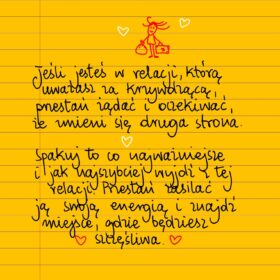 Jeśli jesteś w relacji, którą
uważasz za krzywdzącą,
przestań żądać i oczekiwać,
że zmieni się druga strona.
Spakuj to co najważniejsze
i jak najszybciej wyjdź z tej
relacji. Przestań zasilać
ją swoją energią i znajdź
miejsce, gdzie będziesz
szczęśliwa.